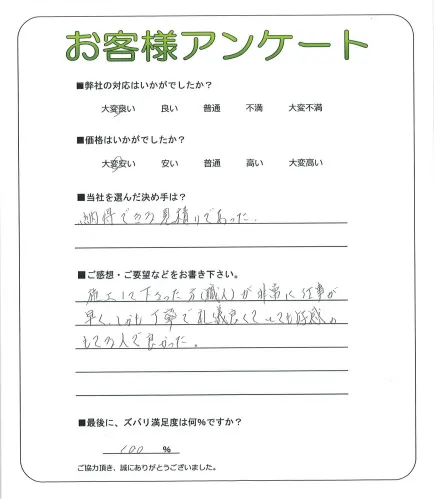 お客様アンケート
■弊社の対応はいかがでしたか？
大変良い 良い 普通 不満 大変不満
■価格はいかがでしたか？
大変安い 安い 普通 高い 大変高い
■当社を選んだ決め手は？
納得できる見積りであった.
■ご感想・ご要望などをお書き下さい。
施工して下さった方(職人)が非常に仕事が
早く、しかも丁寧で礼義良くてとても好感の
もてる人で良かった。
■最後に、ズバリ満足度は何%ですか？
100 %
ご協力頂き、誠にありがとうございました。